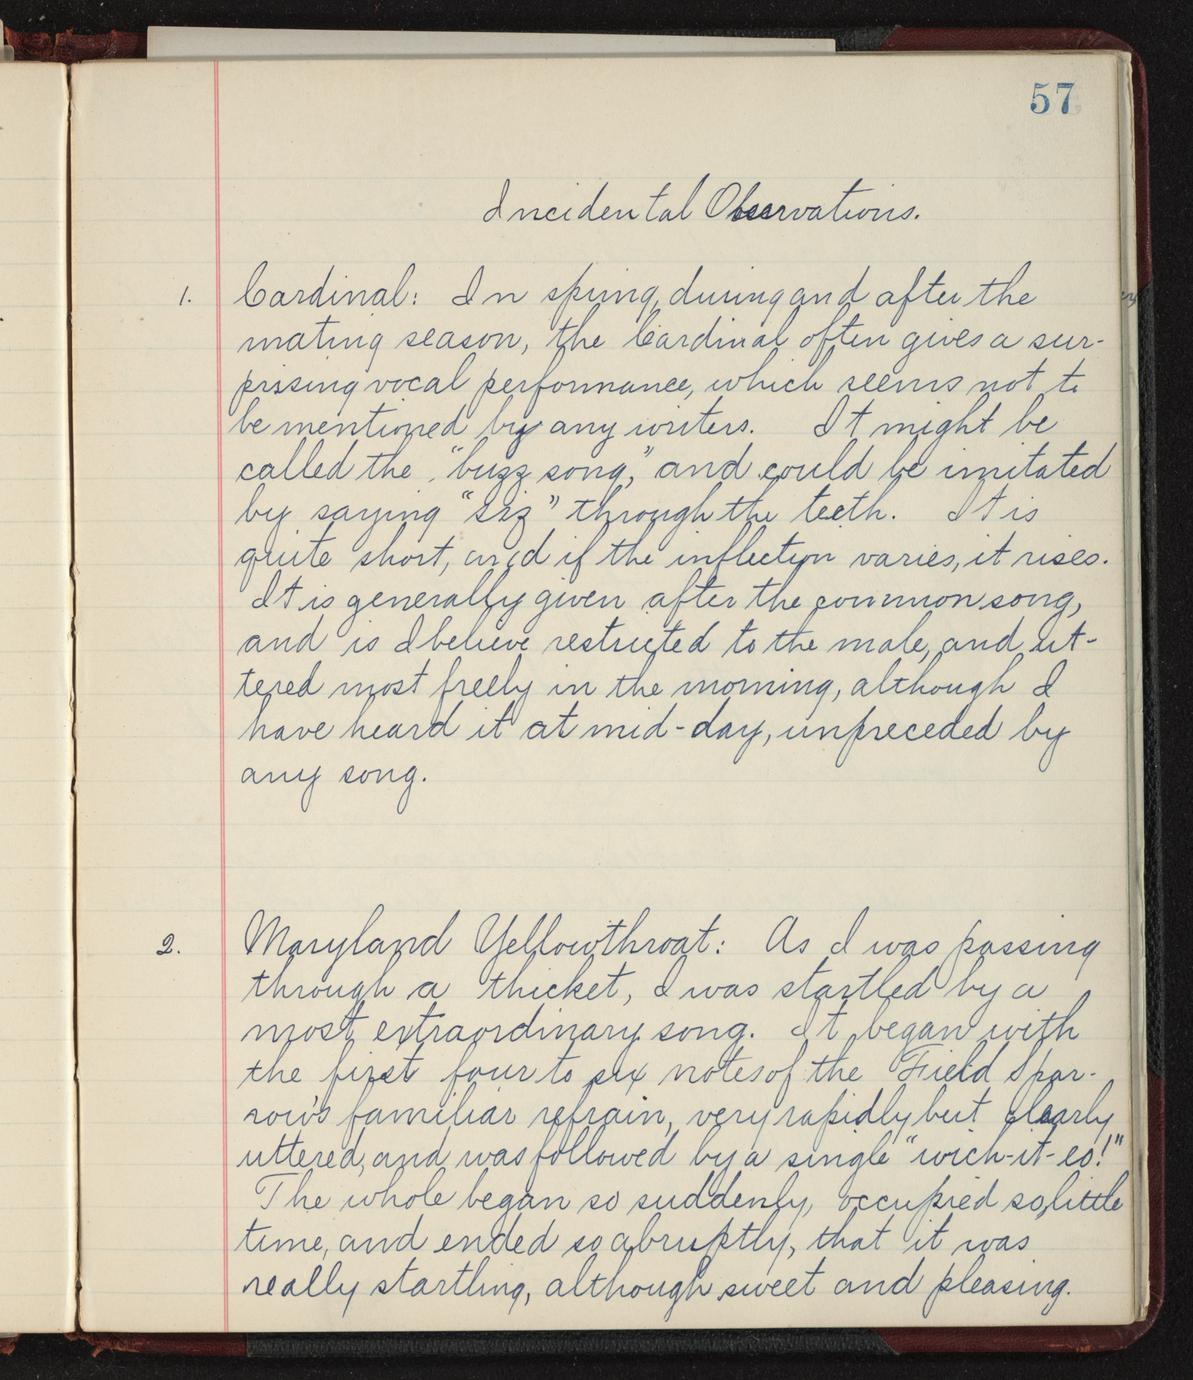 57
Incidental Observations.
1. Cardinal: In spring, during and after the
mating season, the Cardinal often gives a sur-
prising vocal performance, which seems not to
be mentioned by any writers. It might be
called the "buzz song," and could be imitated
by saying "siz" through the teeth. It is
quite short, and if the inflection varies, it rises.
It is generally given after the common song,
and is I believe restricted to the male, and ut-
tered most freely in the morning, although I
have heard it at mid-day, unpreceded by
any song.
2. Maryland Yellowthroat: As I was passing
through a thicket, I was startled by a
most extraordinary song. It began with
the first four to six notes of the Field Spar-
row's familiar refrain, very rapidly but clearly
uttered, and was followed by a single "wich-it-eo!"
The whole began so suddenly, occupied so little
time, and ended so abruptly, that it was
really startling, although sweet and pleasing.